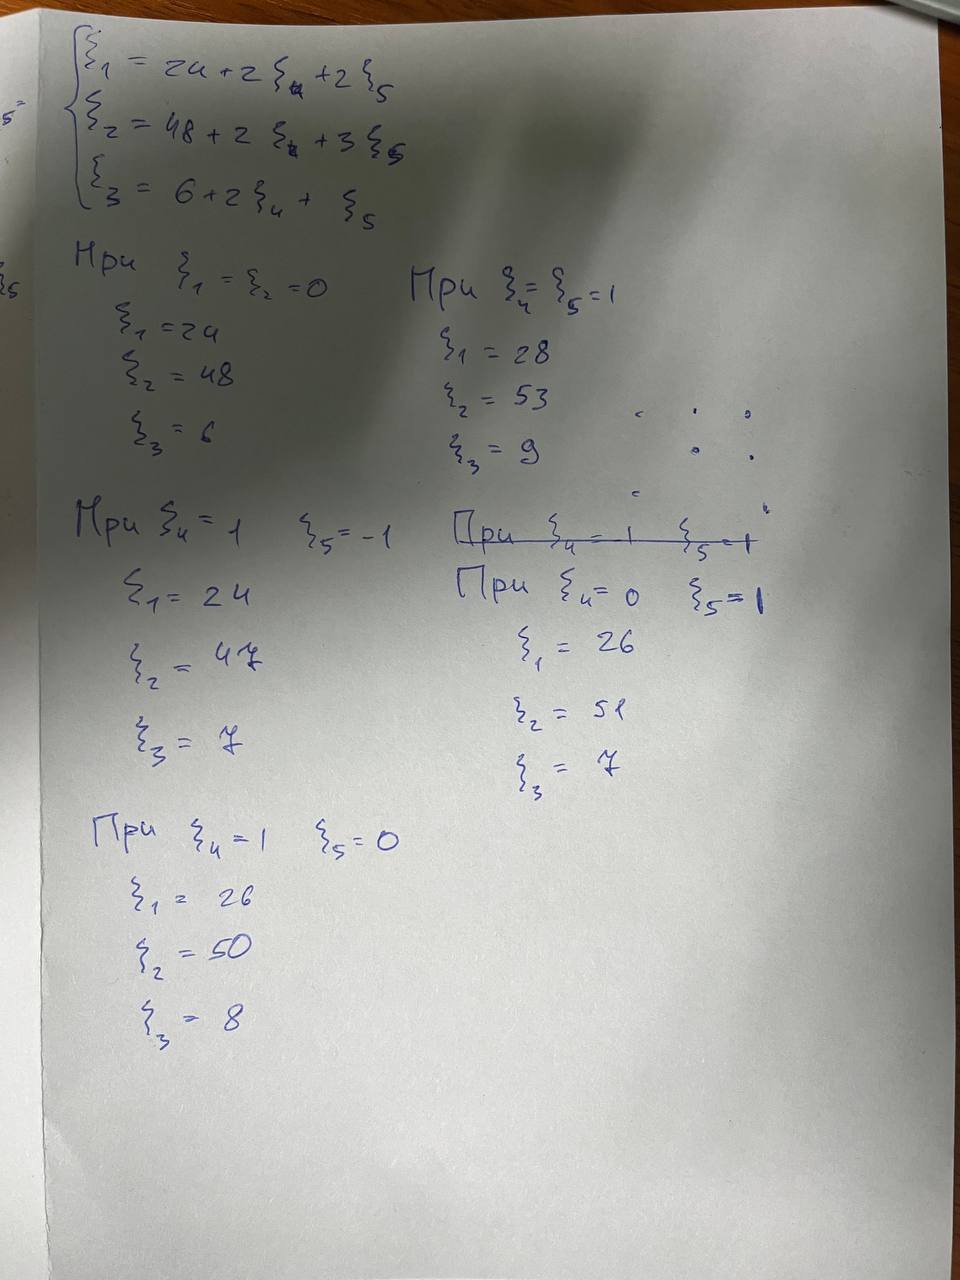 5=
ξ5
ξ1 = 24+2ξ4+2ξ5
ξ2 = 48+2ξ4+3ξ5
ξ3 = 6+2ξ4+ξ5
При ξ1=ξ2=0
ξ1=24
ξ2=48
ξ3=6
При ξ4=ξ5=1
ξ1=28
ξ2=53
ξ3=9
При ξ4=1 ξ5=-1
ξ1=24
ξ2=47
ξ3=7
При ξ4=-1 ξ5=1
При ξ4=0 ξ5=1
ξ1=26
ξ2=51
ξ3=7
При ξ4=1 ξ5=0
ξ1=26
ξ2=50
ξ3=8